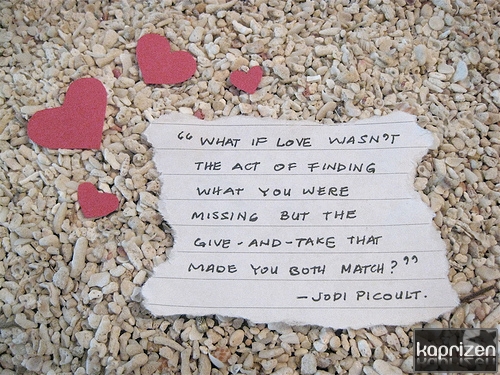 “ WHAT IF LOVE WASN'T
THE ACT OF FINDING
WHAT YOU WERE
MISSING BUT THE
GIVE-AND-TAKE THAT
MADE YOU BOTH MATCH? ”
—JODI PICOULT.
kaprizen